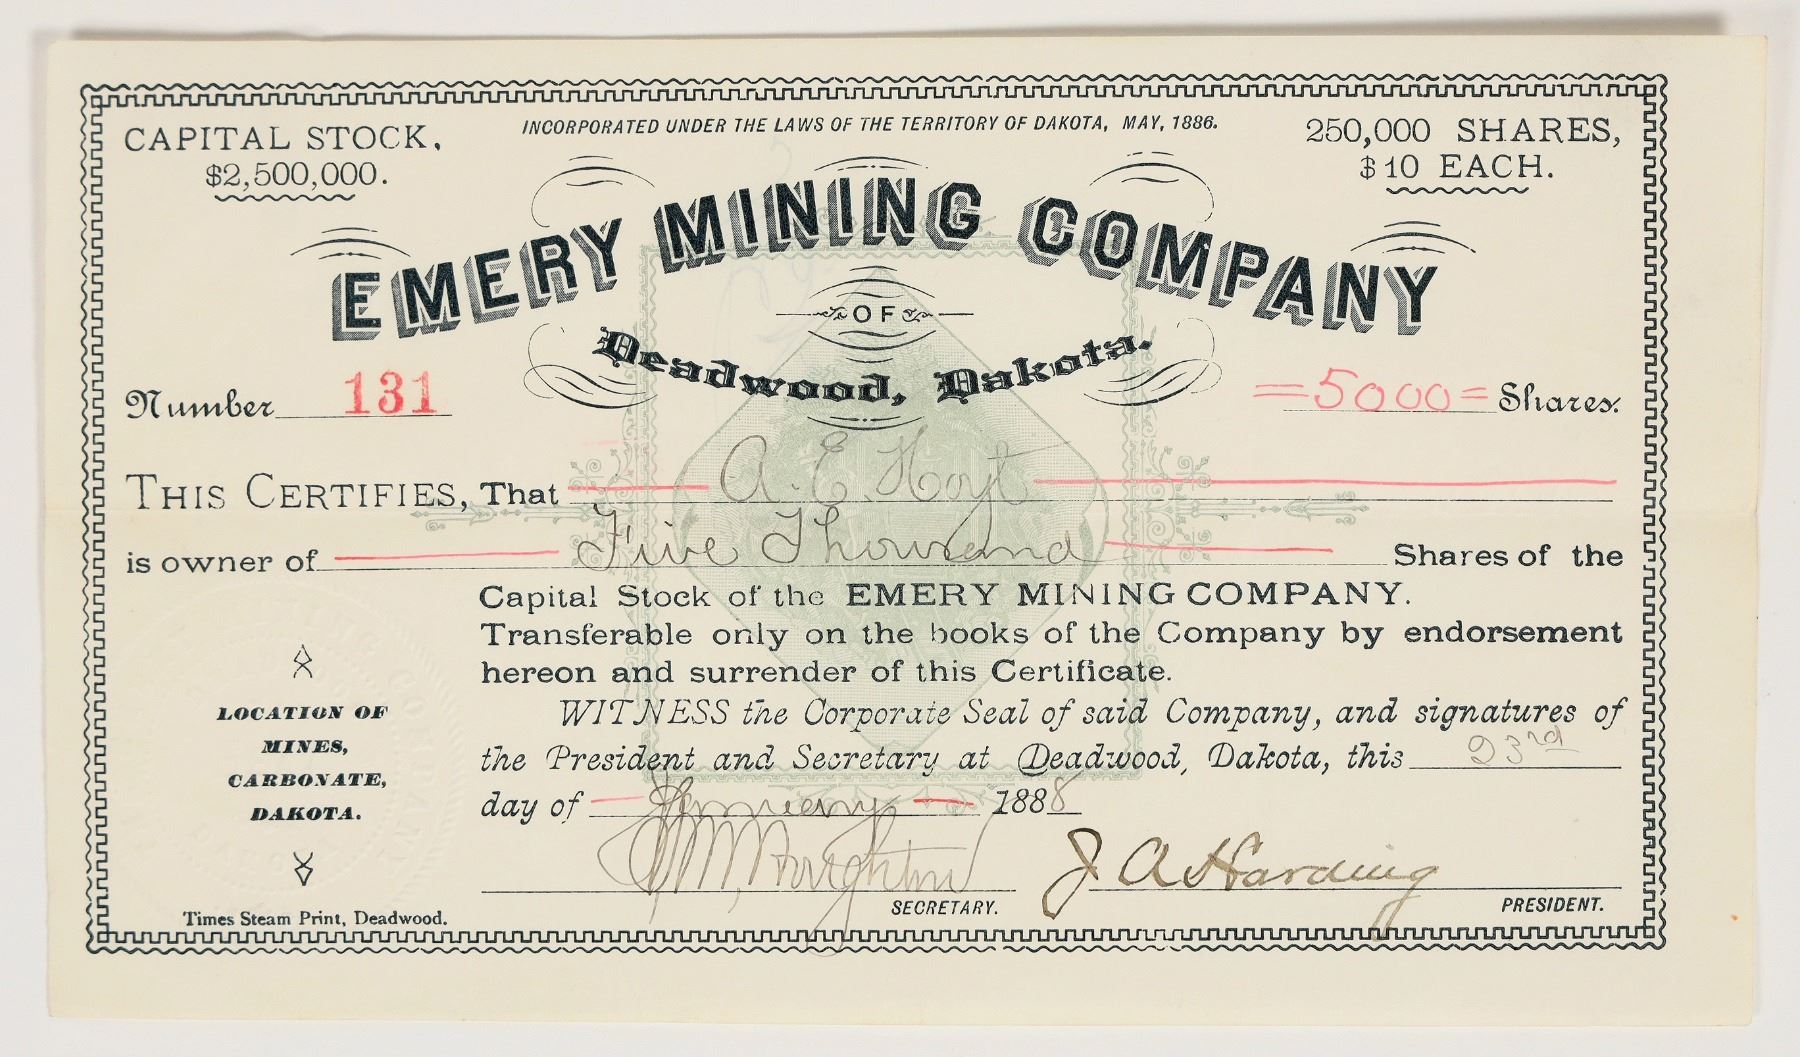 INCORPORATED UNDER THE LAWS OF THE TERRITORY OF DAKOTA, MAY, 1886.
CAPITAL STOCK,
$2,500,000.
250,000 SHARES,
$10 EACH.
EMERY MINING COMPANY
OF
Deadwood, Dakota.
Number 131
=5000= Shares.
THIS CERTIFIES, That A. E. Hoyt
is owner of Five Thousand Shares of the
Capital Stock of the EMERY MINING COMPANY.
Transferable only on the books of the Company by endorsement
hereon and surrender of this Certificate.
WITNESS the Corporate Seal of said Company, and signatures of
the President and Secretary at Deadwood, Dakota, this 23rd
day of January 1888
LOCATION OF
MINES,
CARBONATE,
DAKOTA.
J A Harding
SECRETARY.
PRESIDENT.
Times Steam Print, Deadwood.